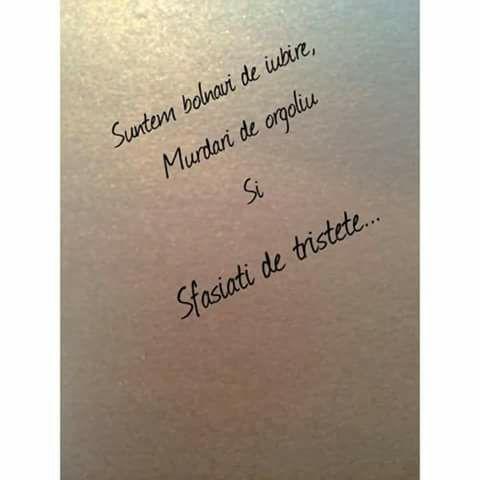 Suntem bolnavi de iubire,
Murdari de orgoliu
Si
Sfasiati de tristete...